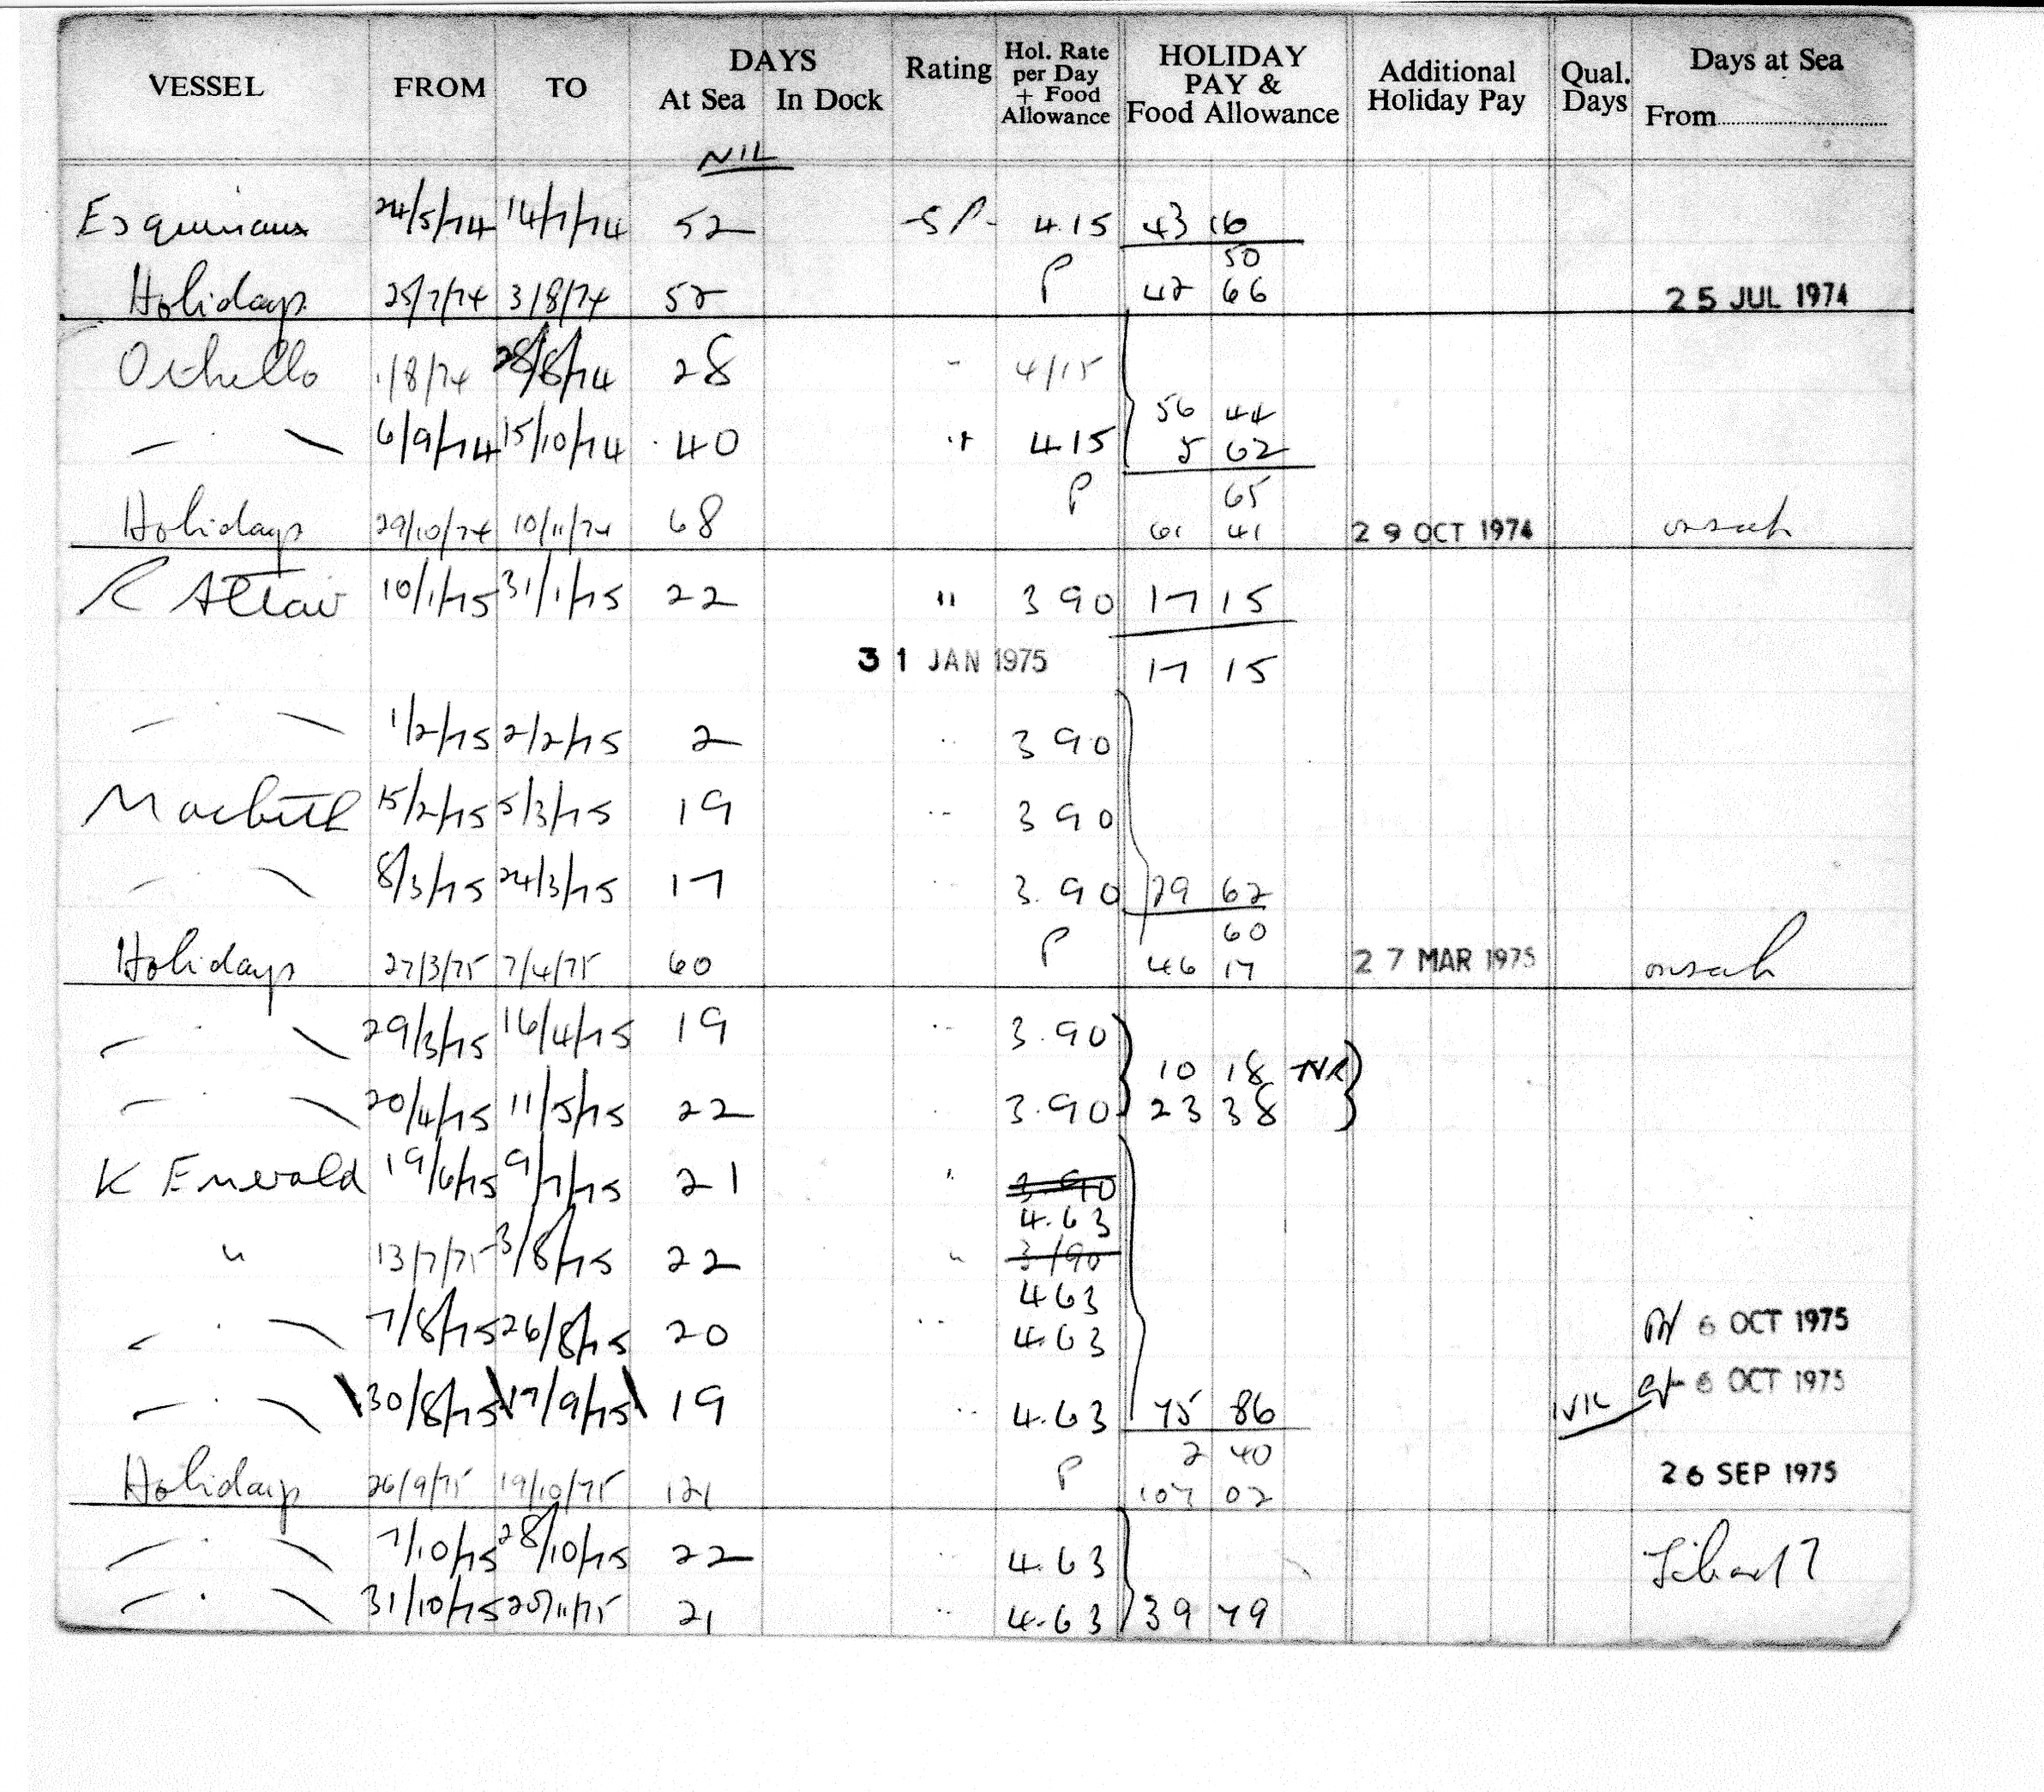 VESSEL FROM TO DAYS At Sea In Dock Rating Hol. Rate per Day + Food Allowance HOLIDAY PAY & Food Allowance Additional Holiday Pay Qual. Days Days at Sea From
NIL
Esquimaux 24/5/74 14/7/74 52 S/- 4.15 43 16
50
Holidays 25/7/74 3/8/74 52 P 42 66 25 JUL 1974
Othello 1/8/74 28/8/74 28 - 4/15
56 44
6/9/74 15/10/74 40 " 4.15 5 62
65
Holidays 29/10/74 10/11/74 68 P 61 41 29 OCT 1974
R Altair 10/1/75 31/1/75 22 " 3 90 17 15
31 JAN 1975 17 15
— " — 1/2/75 2/2/75 2 " 3 90
Macbeth 15/2/75 5/3/75 19 " 3 90
— " — 8/3/75 24/3/75 17 " 3.90 29 62
60
Holidays 27/3/75 7/4/75 60 P 46 17 27 MAR 1975
— " — 29/3/75 16/4/75 19 " 3.90
10 18 TVR
— " — 20/4/75 11/5/75 22 " 3.90 23 38
K Emerald 19/6/75 9/7/75 21 " 3.90
4.63
" 13/7/75 3/8/75 22 " 3/90
4 63
— " — 7/8/75 26/8/75 20 " 4.63 6 OCT 1975
6 OCT 1975
— " — 30/8/75 17/9/75 19 " 4.63 75 86 NIL
2 40
Holidays 26/9/75 19/10/75 121 P 107 02 26 SEP 1975
— " — 7/10/75 28/10/75 22 " 4.63
— " — 31/10/75 20/11/75 21 " 4.63 39 79